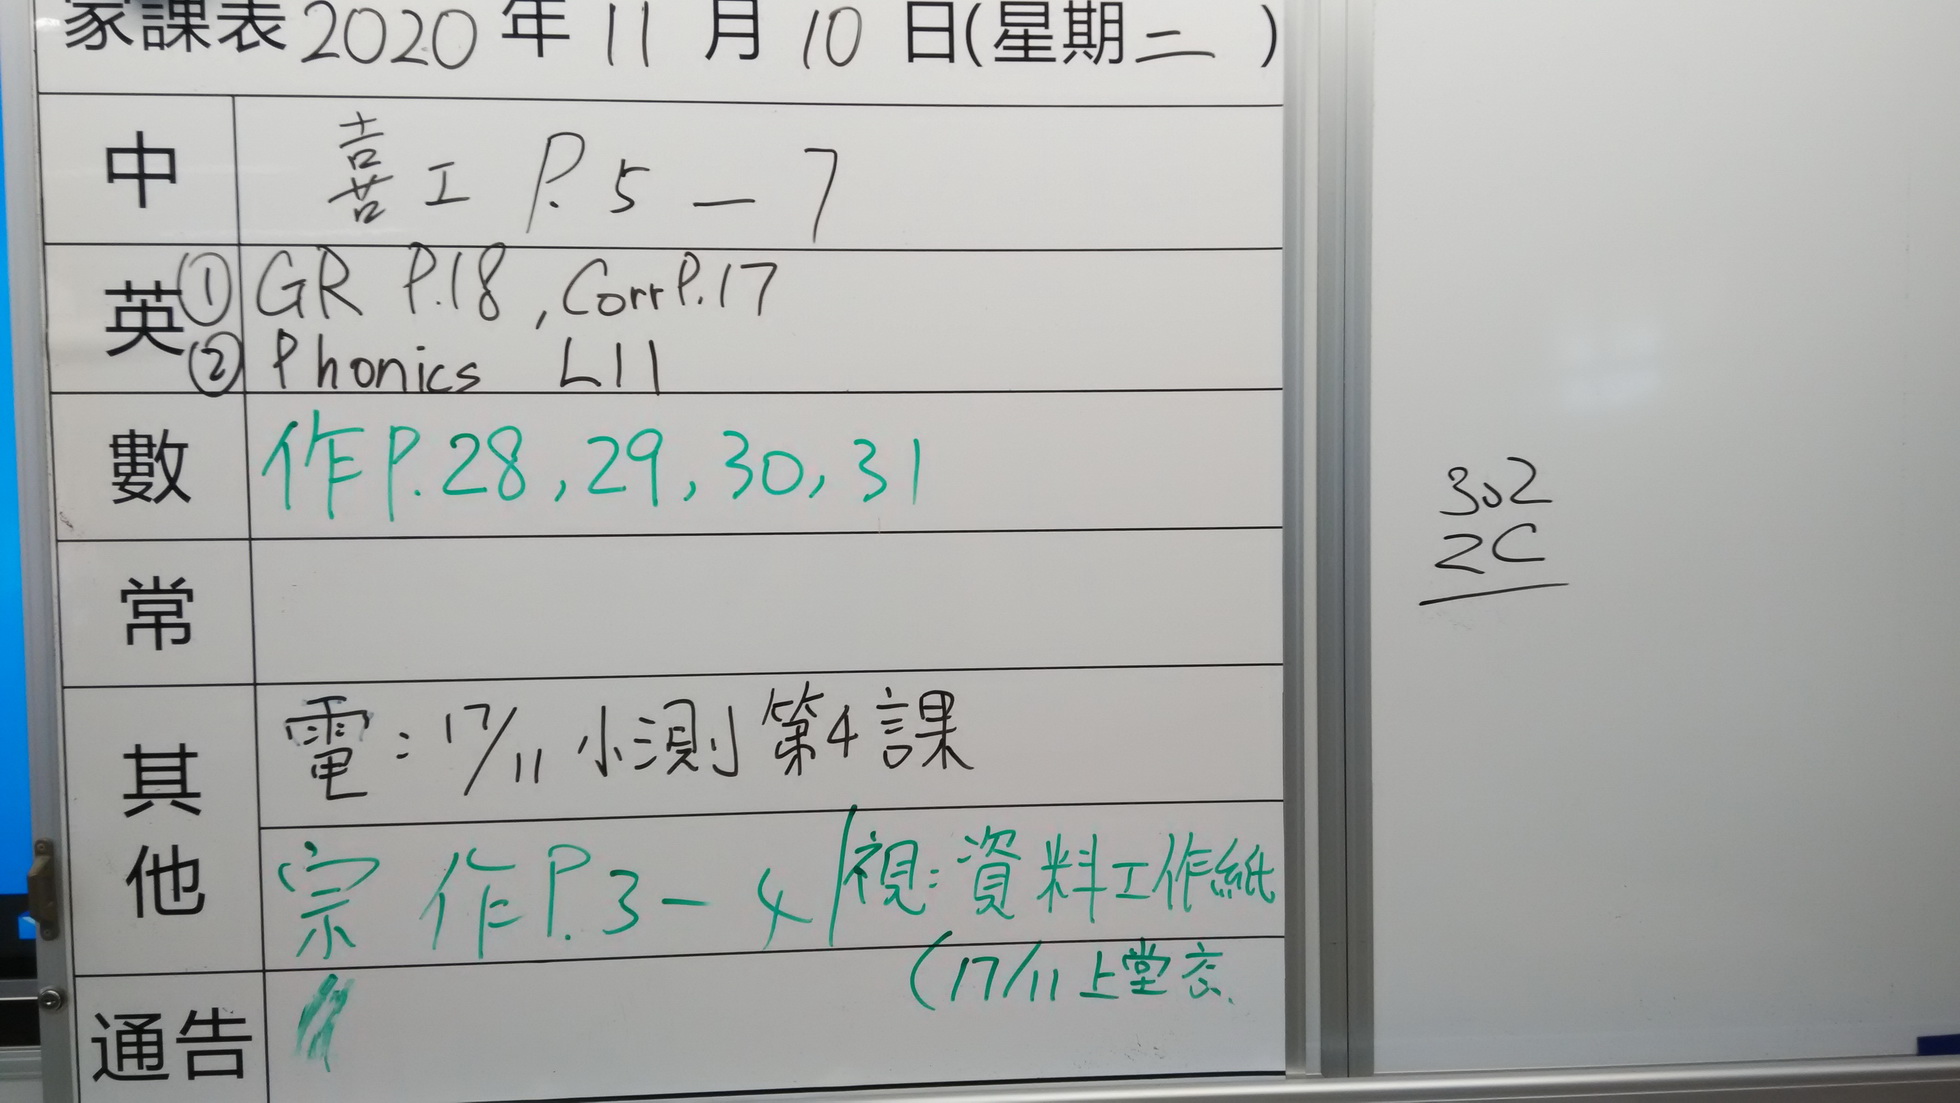 家課表2020年11月10日(星期二)
中 喜工 P.5-7
英 ① GR P.18, Corr P.17
② Phonics L11
數 作P.28, 29, 30, 31
常
其他 電:17/11 小測第4課
宗 作P.3-4/視:資料工作紙
(17/11上堂
通告
302
2C